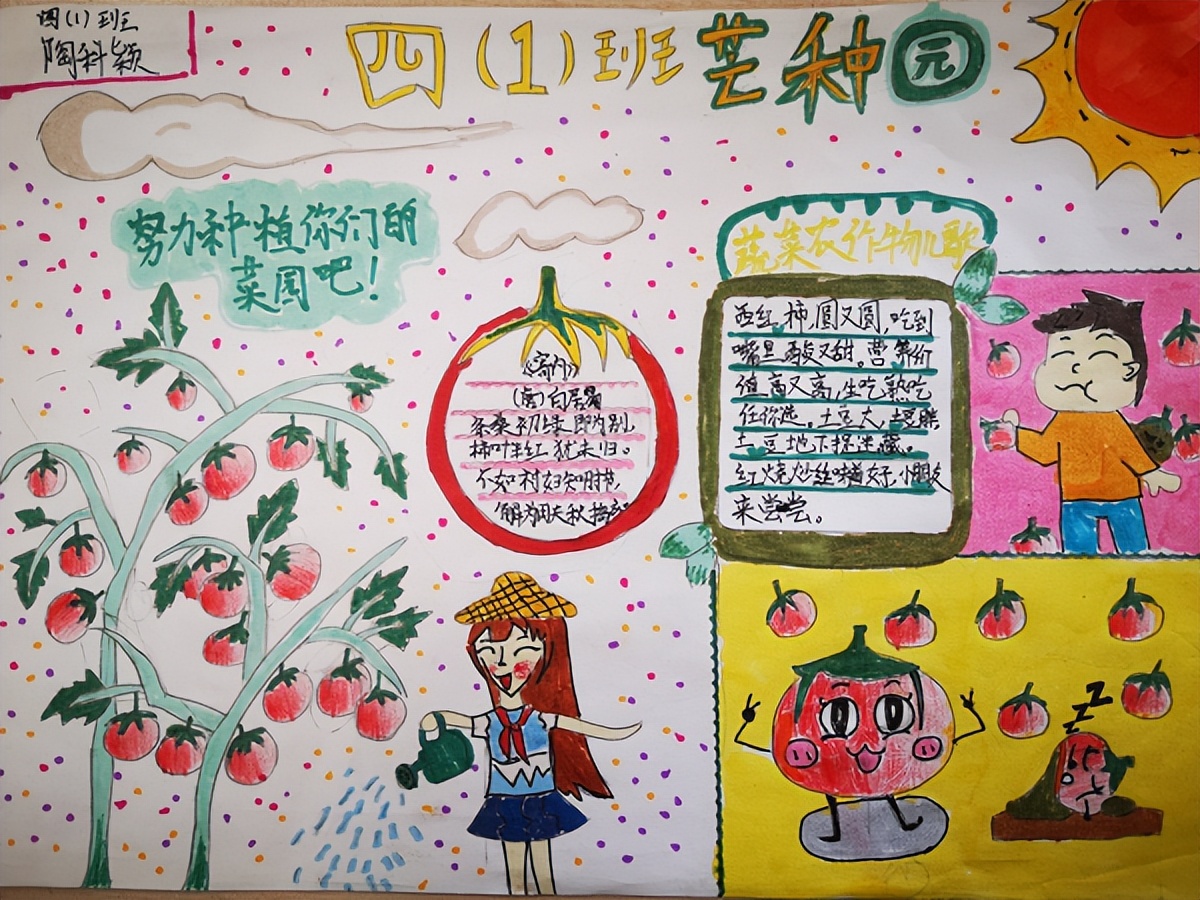 四(1)班
陶科颖
四(1)班芒种园
努力种植你们的
菜园吧！
《寄内》
(唐)白居易
条桑初绿即为别,
柿叶半红犹未归。
不如村妇知时节,
解为田夫秋捣衣。
蔬菜农作物儿歌
西红柿,圆又圆,吃到
嘴里酸又甜。营养价
值高又高,生吃熟吃
任你选。土豆大,土豆胖
土豆地下捉迷藏。
红烧炒丝味道好,小朋友
来尝尝。
Z
Z
Z